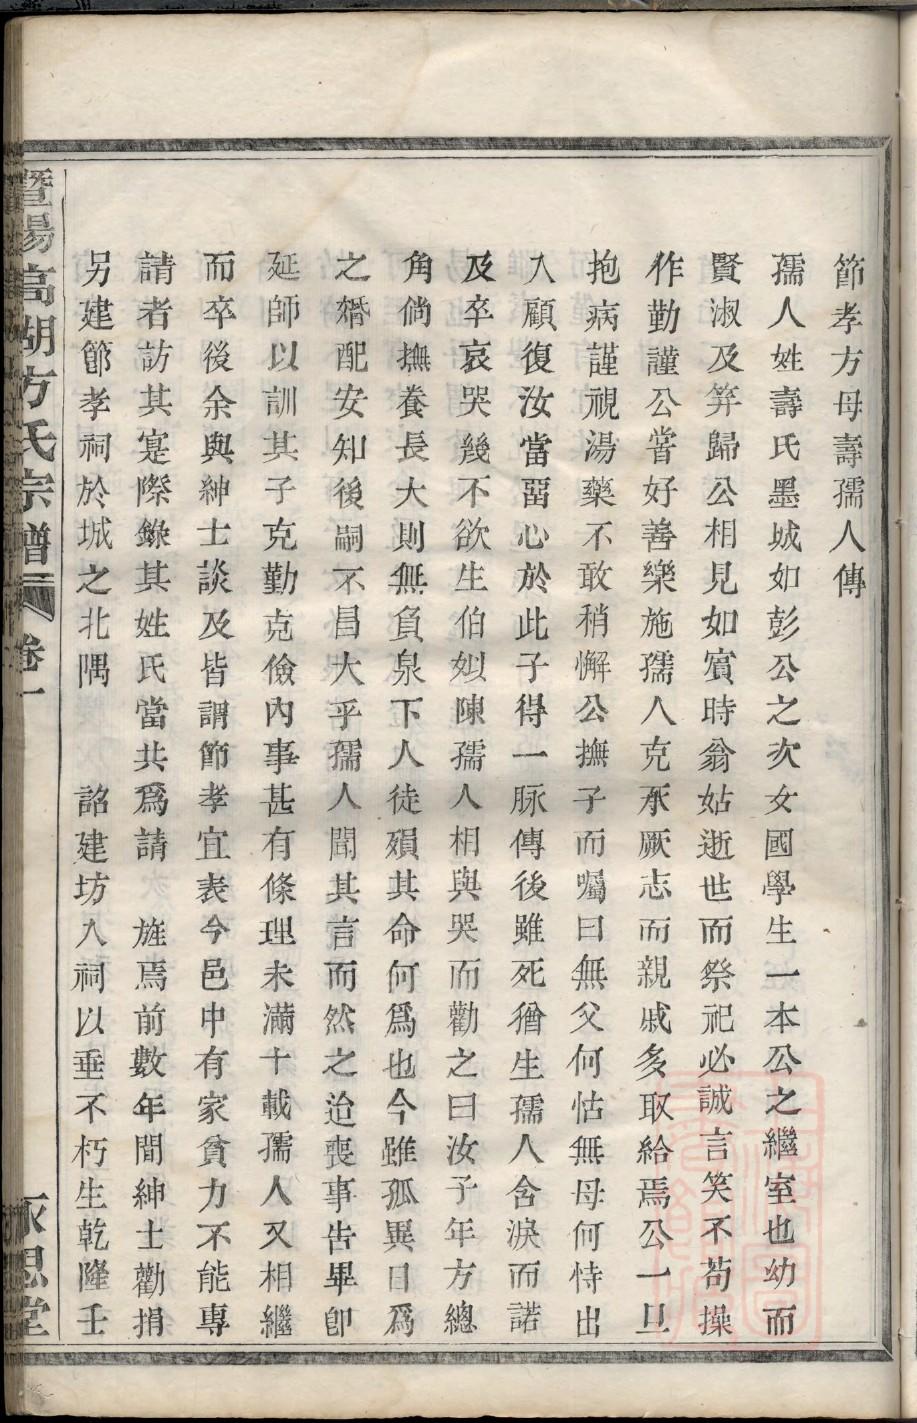 節孝方母壽孺人傳
孺人姓壽氏墨城如彭公之次女國學生一本公之繼室也幼而
賢淑及笄歸公相見如賓時翁姑逝世而祭祀必誠言笑不苟操
作勤謹公嘗好善樂施孺人克承厥志而親戚多取給焉公一旦
抱病謹視湯藥不敢稍懈公撫子而囑曰無父何怙無母何恃出
入顧復汝當畱心於此子得一脉傳後雖死猶生孺人含淚而諾
及卒哀哭幾不欲生伯姒陳孺人相與哭而勸之曰汝子年方總
角倘撫養長大則無負泉下人徒殞其命何爲也今雖孤異日爲
之婚配安知後嗣不昌大乎孺人聞其言而然之迨喪事告畢卽
延師以訓其子克勤克儉內事甚有條理未滿十載孺人又相繼
而卒後余與紳士談及皆謂節孝宜表今邑中有家貧力不能專
請者訪其寔際錄其姓氏當共爲請 旌焉前數年間紳士勸捐
另建節孝祠於城之北隅 詔建坊入祠以垂不朽生乾隆壬
暨陽高湖方氏宗譜 卷一 承思堂